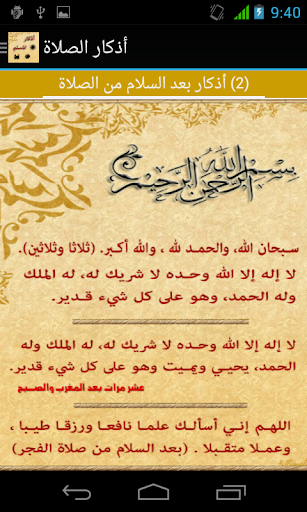 9:40
أذكار الصلاة
(2) أذكار بعد السلام من الصلاة
بسم الله الرحمن الرحيم
سبحان الله، والحمد لله ، والله أكبر. (ثلاثا وثلاثين).
لا إله إلا الله وحده لا شريك له، له الملك
وله الحمد، وهو على كل شيء قدير.
لا إله إلا الله وحده لا شريك له، له الملك وله
الحمد، يحيي ويميت وهو على كل شيء قدير.
عشر مرات بعد المغرب والصبح
اللهم إني أسألك علما نافعا ورزقا طيبا ،
وعملا متقبلا . (بعد السلام من صلاة الفجر)